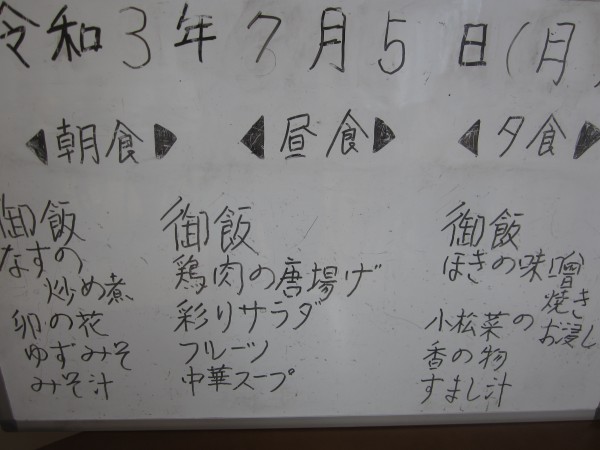 令和3年7月5日(月)
◀朝食▶
御飯
なすの
炒め煮
卯の花
ゆずみそ
みそ汁
◀昼食▶
御飯
鶏肉の唐揚げ
彩りサラダ
フルーツ
中華スープ
◀夕食▶
御飯
ほきの味噌
焼き
小松菜の
お浸し
香の物
すまし汁